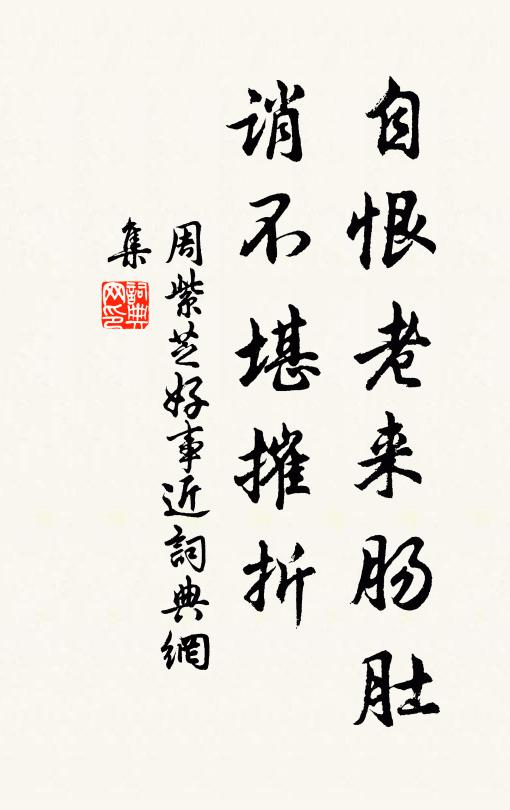 自恨老来肠肚
诮不堪摧折
周紫芝好事近詞典網
集
詞典
网印